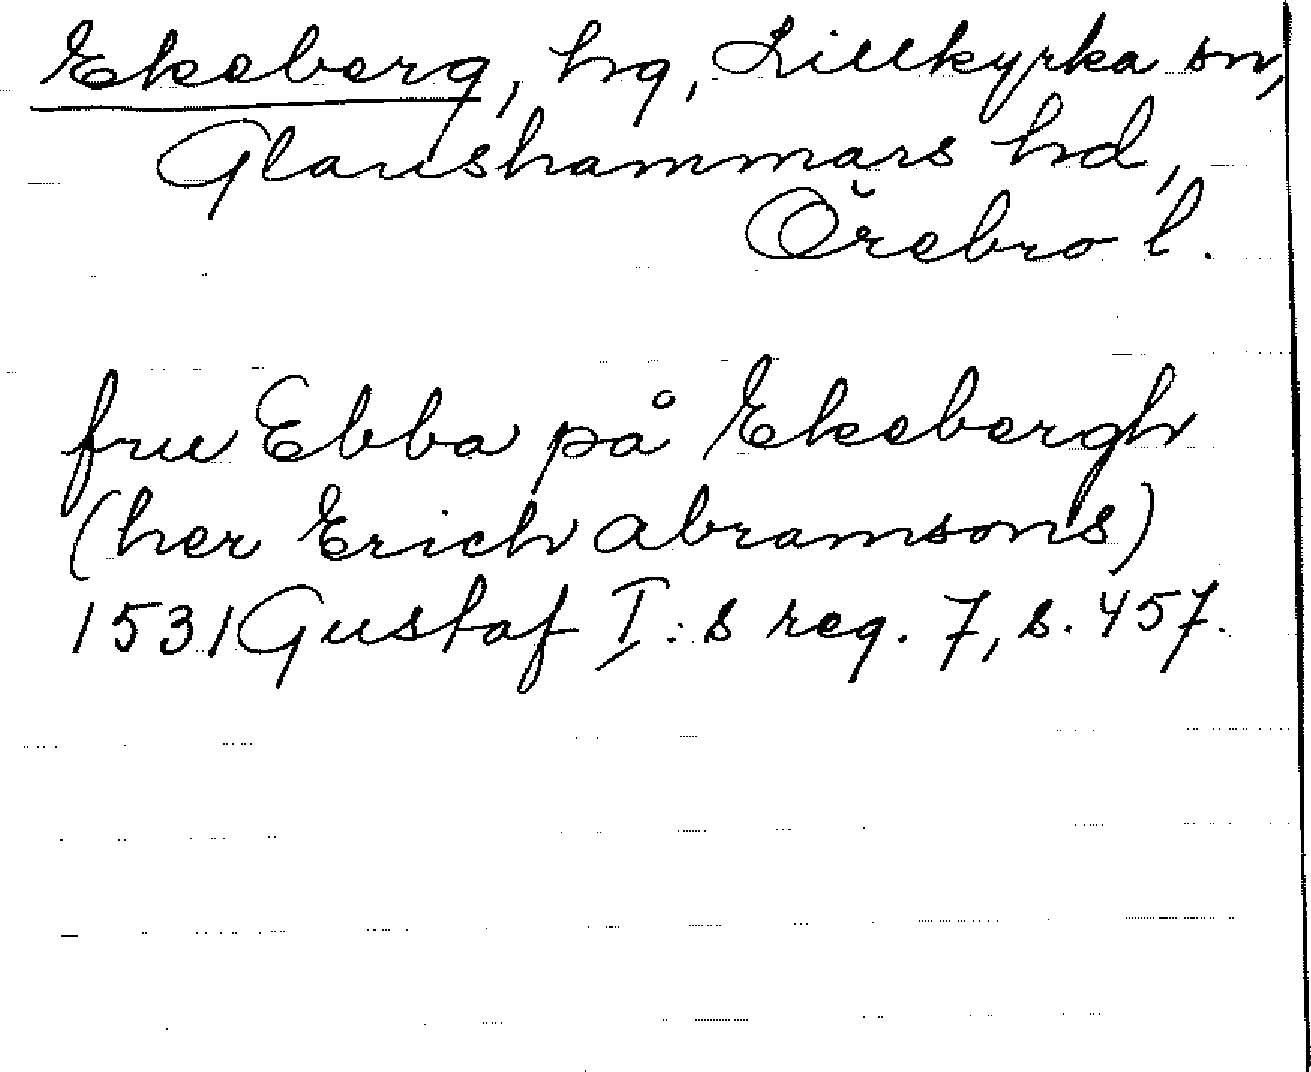 Ekeberg, hg, Lillkyrka sn,
Glanshammars hd,
Örebro l.
fru Ebba på Ekebergh
(her Erich abramsons)
1531 Gustaf I:s reg. 7, s. 457.